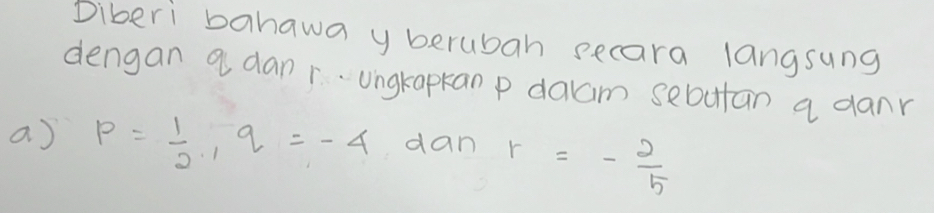 Diberi bahawa y berubah secara langsung
dengan q dan r. Ungkapkan p dalam sebutan q dan r
a) p = 1/2, q = -4 dan r = - 2/5